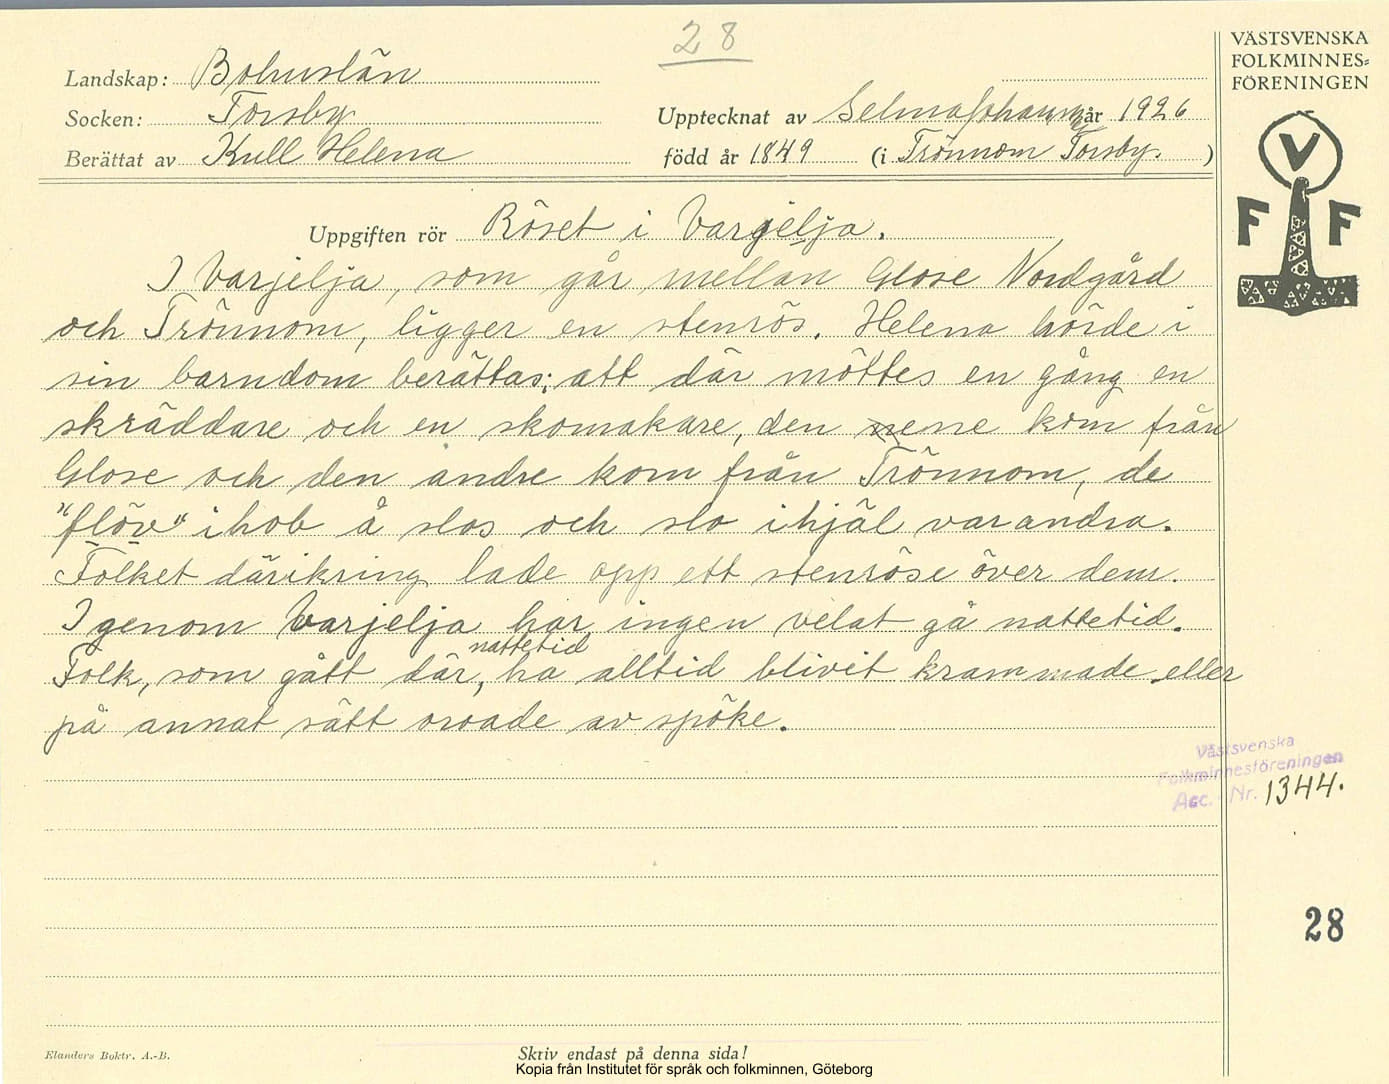 28
VÄSTSVENSKA
FOLKMINNES=
FÖRENINGEN
Landskap: Bohuslän
Socken: Torsby Upptecknat av Selma Johansson år 1926
Berättat av Kull Helena född år 1849 (i Trönnom Torsby.)
V
F F
Uppgiften rör Röset i Varjelja.
I Varjelja, som går mellan Glose Nordgård
och Trönnom, ligger en stenrös. Helena hörde i
sin barndom berättas; att där möttes en gång en
skräddare och en skomakare, den nene kom från
Glose och den andre kom från Trönnom, de
"flöv" ihob å slos och slo ihjäl varandra.
Folket därikring lade opp ett stenröse över dem.
Igenom Varjelja har ingen velat gå nattetid.
nattetid
Folk, som gått där, ha alltid blivit krammade eller
på annat sätt oroade av spöke.
Västsvenska
Folkminnesföreningen
Acc. Nr. 1344.
28
Elanders Boktr. A.-B.
Skriv endast på denna sida!
Kopia från Institutet för språk och folkminnen, Göteborg